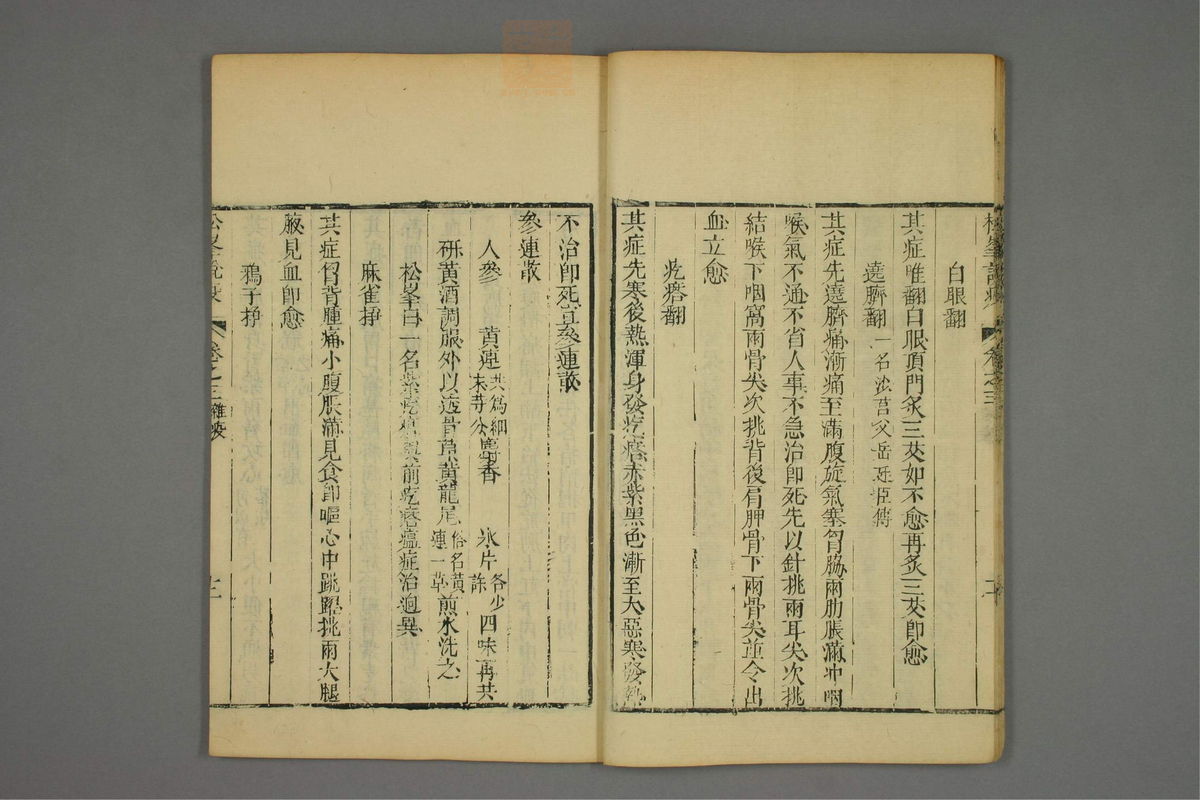 松峯說疫 卷之三
白眼翻
其症唯翻白眼頂門炙三艾如不愈再炙三艾即愈
遶臍翻 一名
其症先遶臍痛漸痛至滿腹旋氣塞胷脇兩肋脹滿冲咽
喉氣不通不省人事不急治即死先以針挑兩耳尖次挑
結喉下咽窩兩骨尖次挑背後肩胛骨下兩骨尖並令出
血立愈
疙瘩翻
其症先寒後熱渾身發疙瘩赤紫黑色漸至大惡寒發熱
不治即死宜參連散
參連散
人參 黃連 共為細末等分 麝香 氷片 各少許 四味再共
研黃酒調服外以透骨草黃龍尾 俗名黃連一草 煎水洗之
松峯曰一名紫疙瘩與前疙瘩瘟症治迥異
麻雀掙
其症胷背腫痛小腹脹滿見食即嘔心中跳躍挑兩大腿
腋見血即愈
鴉子掙
松峯說疫 卷之三 雜疫